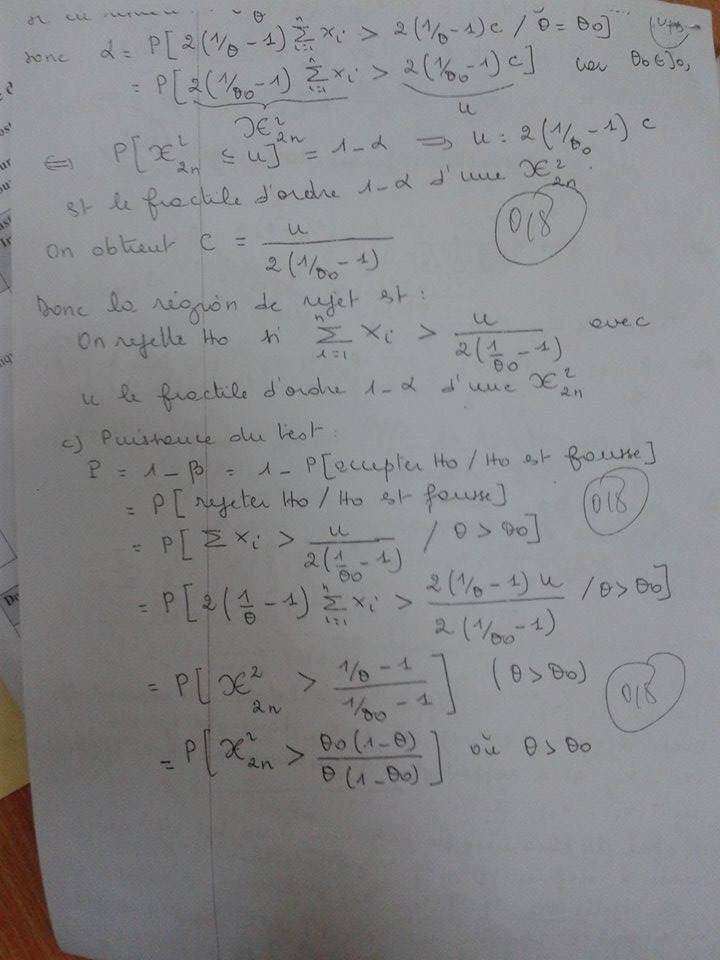 donc α = P[2(1/θ - 1) Σ_{i=1}^{n} xi > 2(1/θ - 1) c / θ = θ0]
= P[2(1/θ0 - 1) Σ_{i=1}^{n} xi > 2(1/θ0 - 1) c] car θ0 ∈ ]0,
χ²_{2n} u
⇔ P[χ²_{2n} ≤ u] = 1 - α ⇒ u = 2(1/θ0 - 1) c
est le fractile d'ordre 1 - α d'une χ²_{2n}.
On obtient c = u / 2(1/θ0 - 1)
0,8
Donc la région de rejet est :
On rejette H0 si Σ_{i=1}^{n} xi > u / 2(1/θ0 - 1) avec
u le fractile d'ordre 1 - α d'une χ²_{2n}
c) Puissance du test :
P = 1 - β = 1 - P[accepter H0 / H0 est fausse]
= P[rejeter H0 / H0 est fausse]
0,8
= P[Σ xi > u / 2(1/θ0 - 1) / θ > θ0]
= P[2(1/θ - 1) Σ_{i=1}^{n} xi > 2(1/θ - 1) u / 2(1/θ0 - 1) / θ > θ0]
= P[χ²_{2n} > (1/θ - 1) / (1/θ0 - 1)] (θ > θ0)
0,8
= P[χ²_{2n} > θ0(1 - θ) / θ(1 - θ0)] où θ > θ0